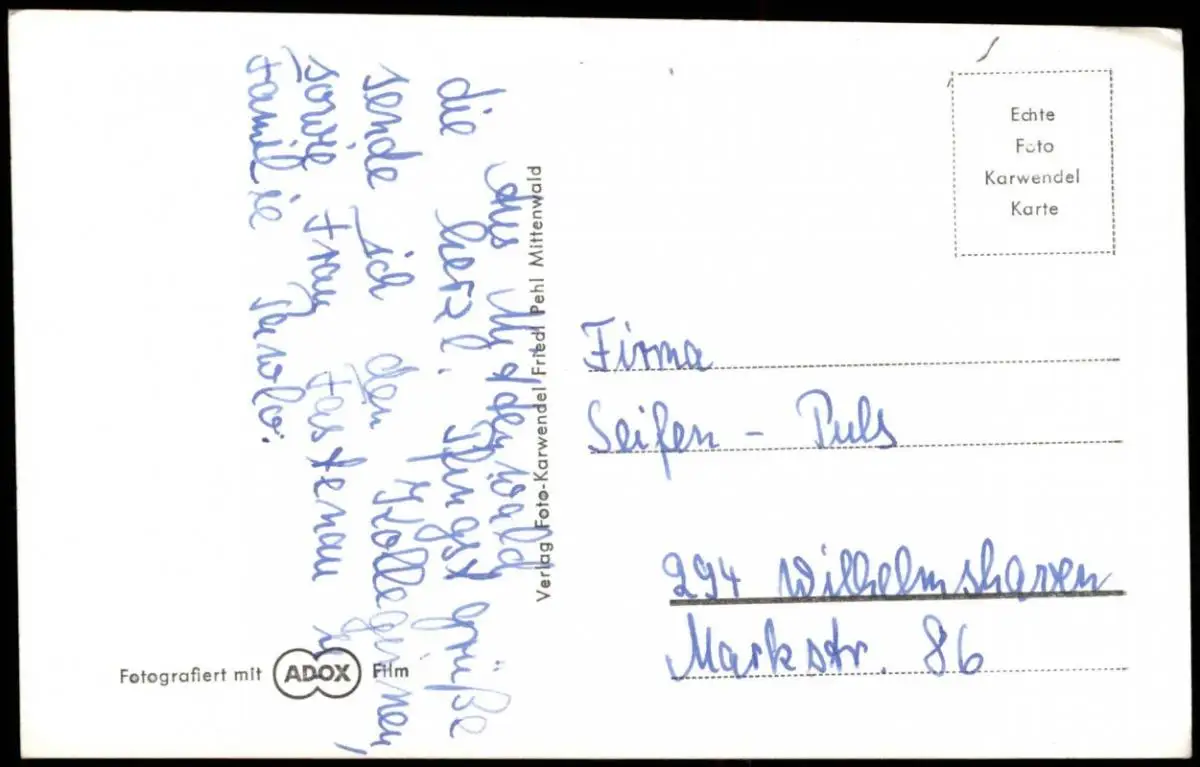 Aus Mittenwald
die herzl. Pfingstgrüße
sende ich den Kolleginnen,
sowie Frau Fastenau u.
Familie
Verlag Foto-Karwendel Friedl Pehl Mittenwald
Fotografiert mit ADOX Film
Echte
Foto
Karwendel
Karte
Firma
Seifen - Puls
294 Wilhelmshaven
Markstr. 86